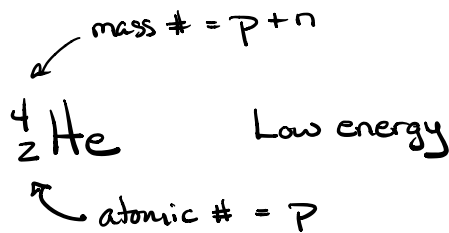 mass # = p + n
4
2 He Low energy
atomic # = p